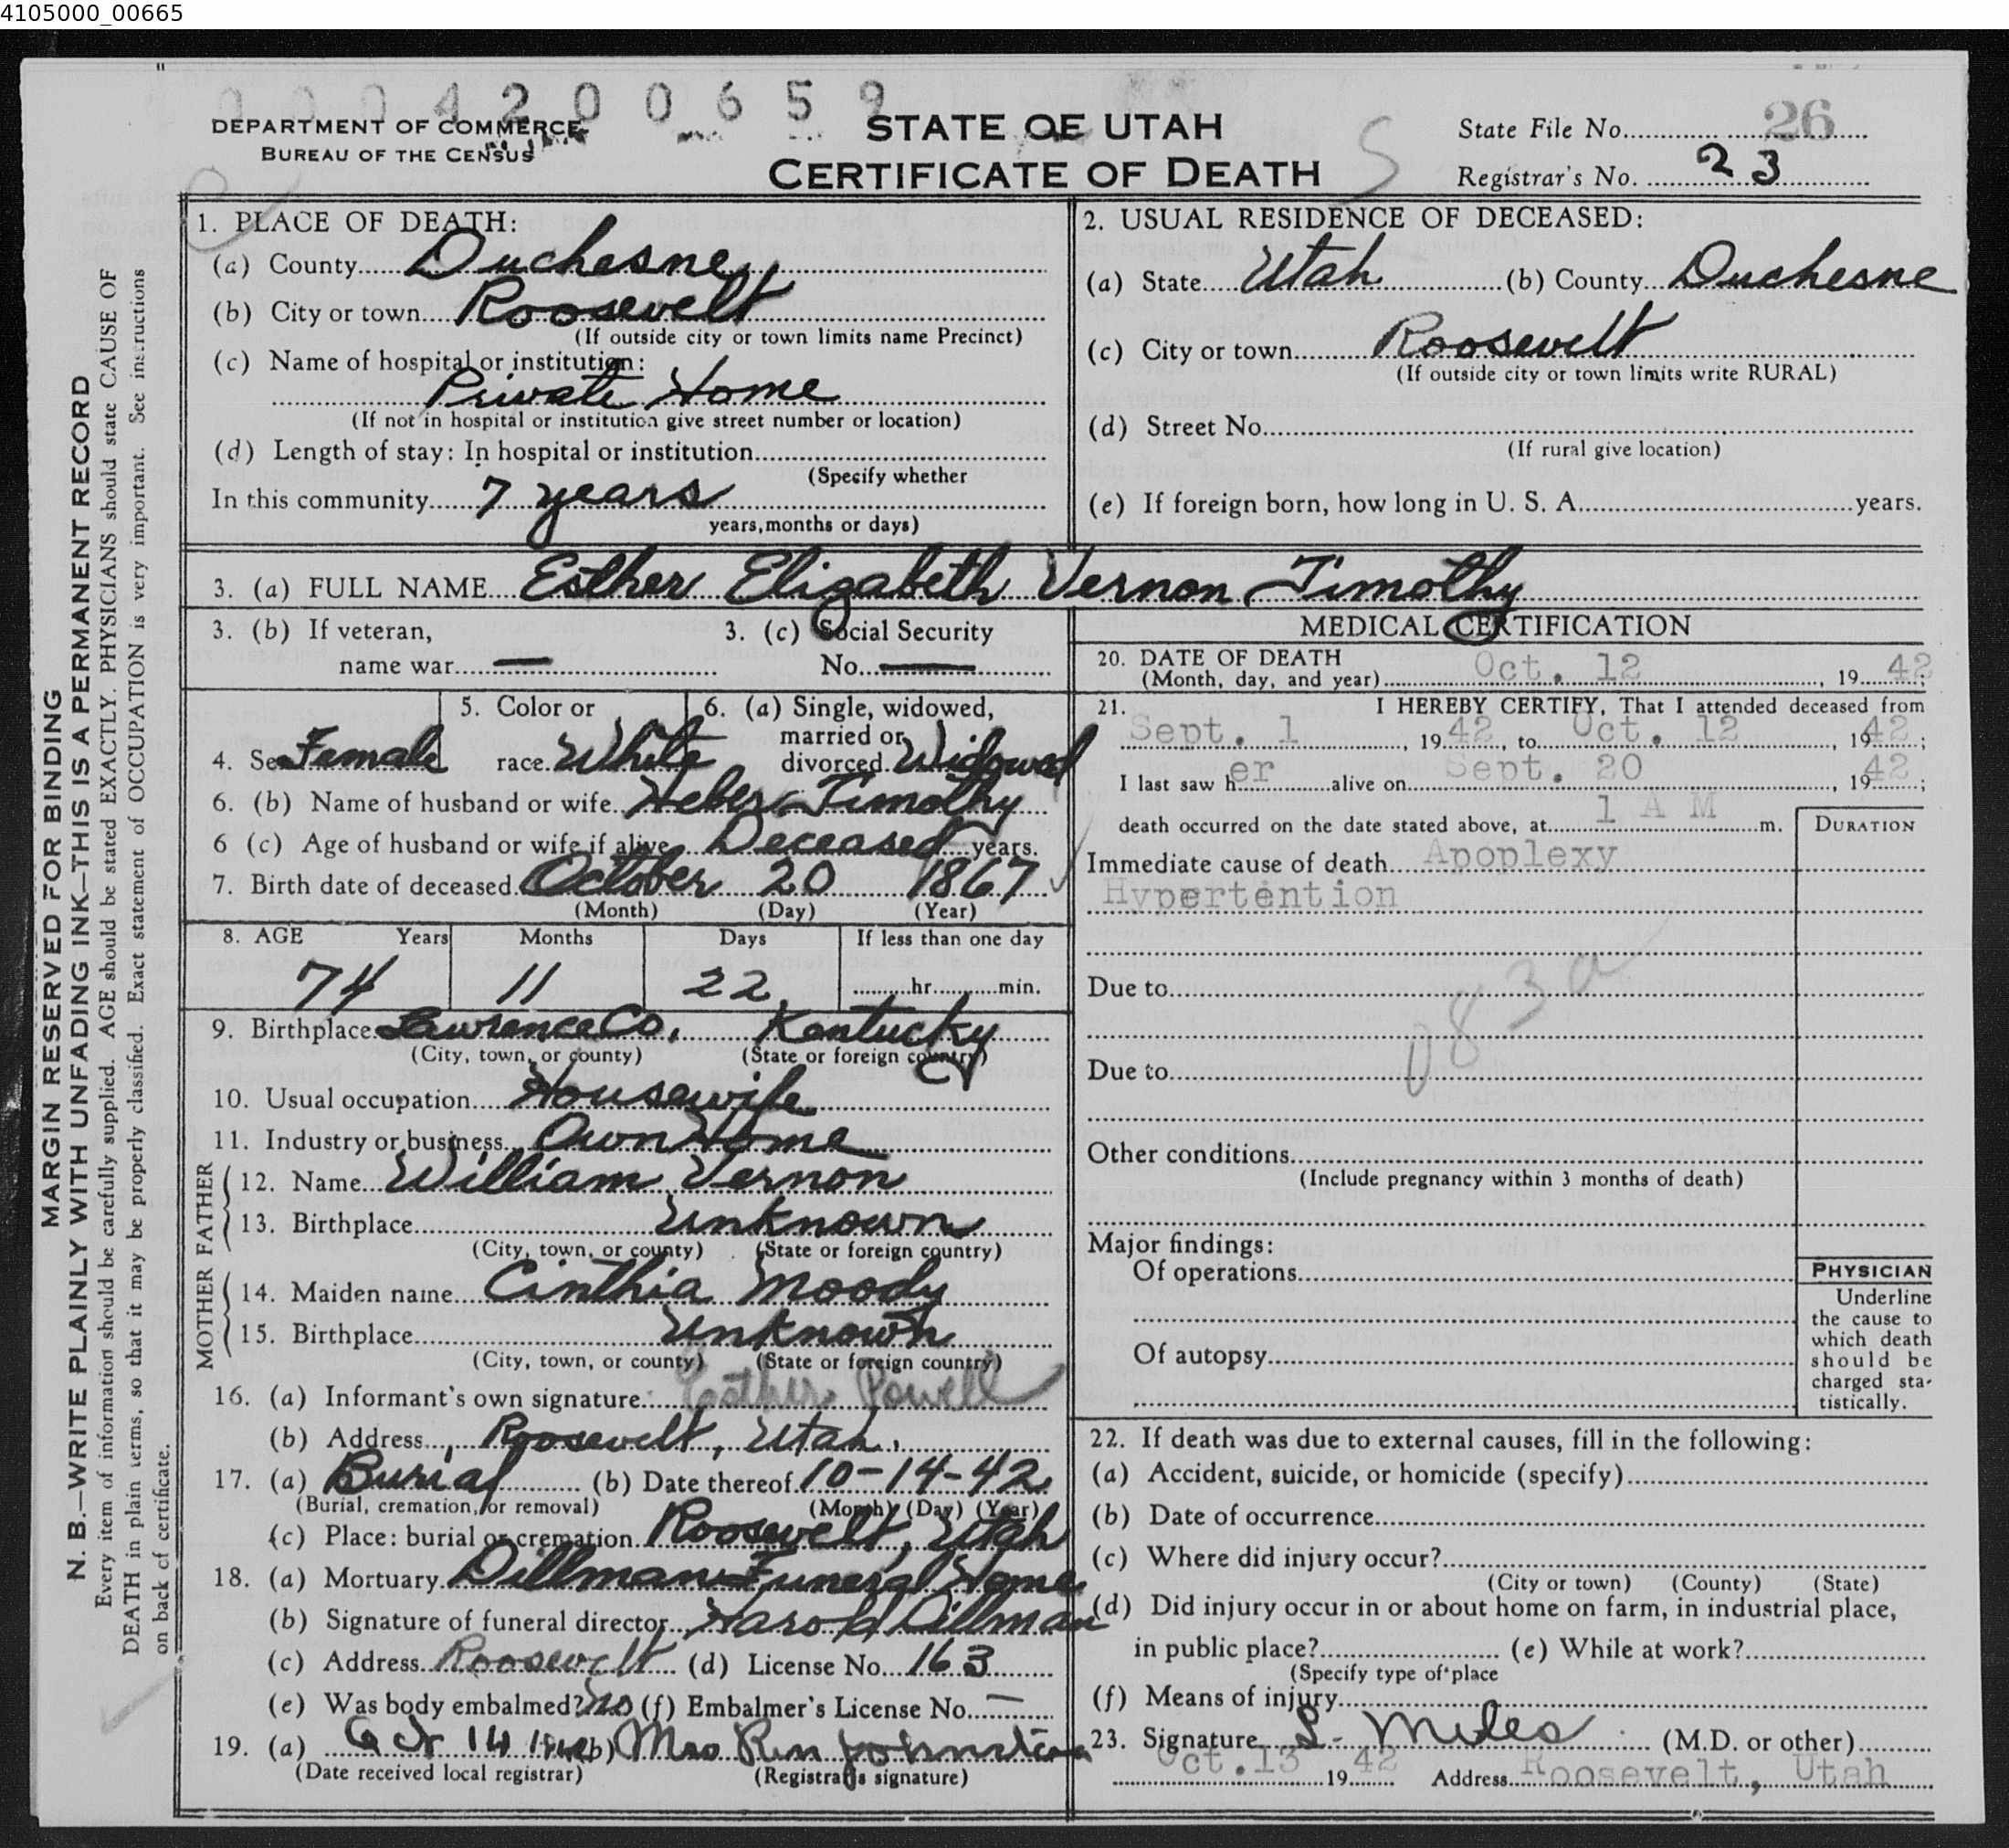 4105000_00665
0004200659
DEPARTMENT OF COMMERCE
BUREAU OF THE CENSUS
STATE OF UTAH
CERTIFICATE OF DEATH
State File No. 26
Registrar's No. 23
MARGIN RESERVED FOR BINDING
N. B.—WRITE PLAINLY WITH UNFADING INK—THIS IS A PERMANENT RECORD
Every item of information should be carefully supplied. AGE should be stated EXACTLY. PHYSICIANS should state CAUSE OF
DEATH in plain terms, so that it may be properly classified. Exact statement of OCCUPATION is very important. See instructions
on back of certificate.
1. PLACE OF DEATH:
(a) County Duchesne
(b) City or town Roosevelt
(If outside city or town limits name Precinct)
(c) Name of hospital or institution:
Private Home
(If not in hospital or institution give street number or location)
(d) Length of stay: In hospital or institution
(Specify whether
In this community 7 years
years, months or days)
2. USUAL RESIDENCE OF DECEASED:
(a) State Utah (b) County Duchesne
(c) City or town Roosevelt
(If outside city or town limits write RURAL)
(d) Street No.
(If rural give location)
(e) If foreign born, how long in U. S. A. years.
3. (a) FULL NAME Esther Elizabeth Vernon Timothy
3. (b) If veteran,
name war —
3. (c) Social Security
No. —
4. Sex Female
5. Color or
race White
6. (a) Single, widowed,
married or
divorced Widowed
6. (b) Name of husband or wife Heber Timothy
6 (c) Age of husband or wife if alive Deceased years.
7. Birth date of deceased October 20 1867
(Month) (Day) (Year)
8. AGE Years Months Days If less than one day
74 11 22 hr. min.
9. Birthplace Lawrence Co. Kentucky
(City, town, or county) (State or foreign country)
10. Usual occupation Housewife
11. Industry or business Own Home
FATHER
12. Name William Vernon
13. Birthplace Unknown
(City, town, or county) (State or foreign country)
MOTHER
14. Maiden name Cinthia Moody
15. Birthplace Unknown
(City, town, or county) (State or foreign country)
16. (a) Informant's own signature Esther Powell
(b) Address Roosevelt, Utah
17. (a) Burial (b) Date thereof 10-14-42
(Burial, cremation, or removal) (Month) (Day) (Year)
(c) Place: burial or cremation Roosevelt, Utah
18. (a) Mortuary Dillman Funeral Home
(b) Signature of funeral director Harold Dillman
(c) Address Roosevelt (d) License No. 163
(e) Was body embalmed? No (f) Embalmer's License No. —
19. (a) Oct 14 1942 (b) Mrs Johnston
(Date received local registrar) (Registrar's signature)
MEDICAL CERTIFICATION
20. DATE OF DEATH
(Month, day, and year) Oct. 12, 1942;
21. I HEREBY CERTIFY, That I attended deceased from
Sept. 1, 1942, to Oct. 12, 1942;
I last saw her alive on Sept. 20, 1942;
death occurred on the date stated above, at 1 A M m.
DURATION
Immediate cause of death Apoplexy
Hypertention
Due to
083a
Due to
Other conditions
(Include pregnancy within 3 months of death)
Major findings:
Of operations
Of autopsy
PHYSICIAN
Underline
the cause to
which death
should be
charged sta-
tistically.
22. If death was due to external causes, fill in the following:
(a) Accident, suicide, or homicide (specify)
(b) Date of occurrence
(c) Where did injury occur?
(City or town) (County) (State)
(d) Did injury occur in or about home on farm, in industrial place,
in public place? (e) While at work?
(Specify type of place
(f) Means of injury
23. Signature L. Miles (M.D. or other)
Oct. 13 1942 Address Roosevelt, Utah